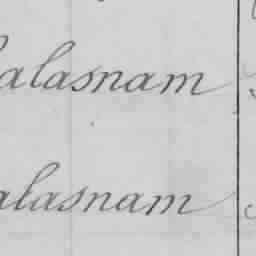 alasnam
alasnam